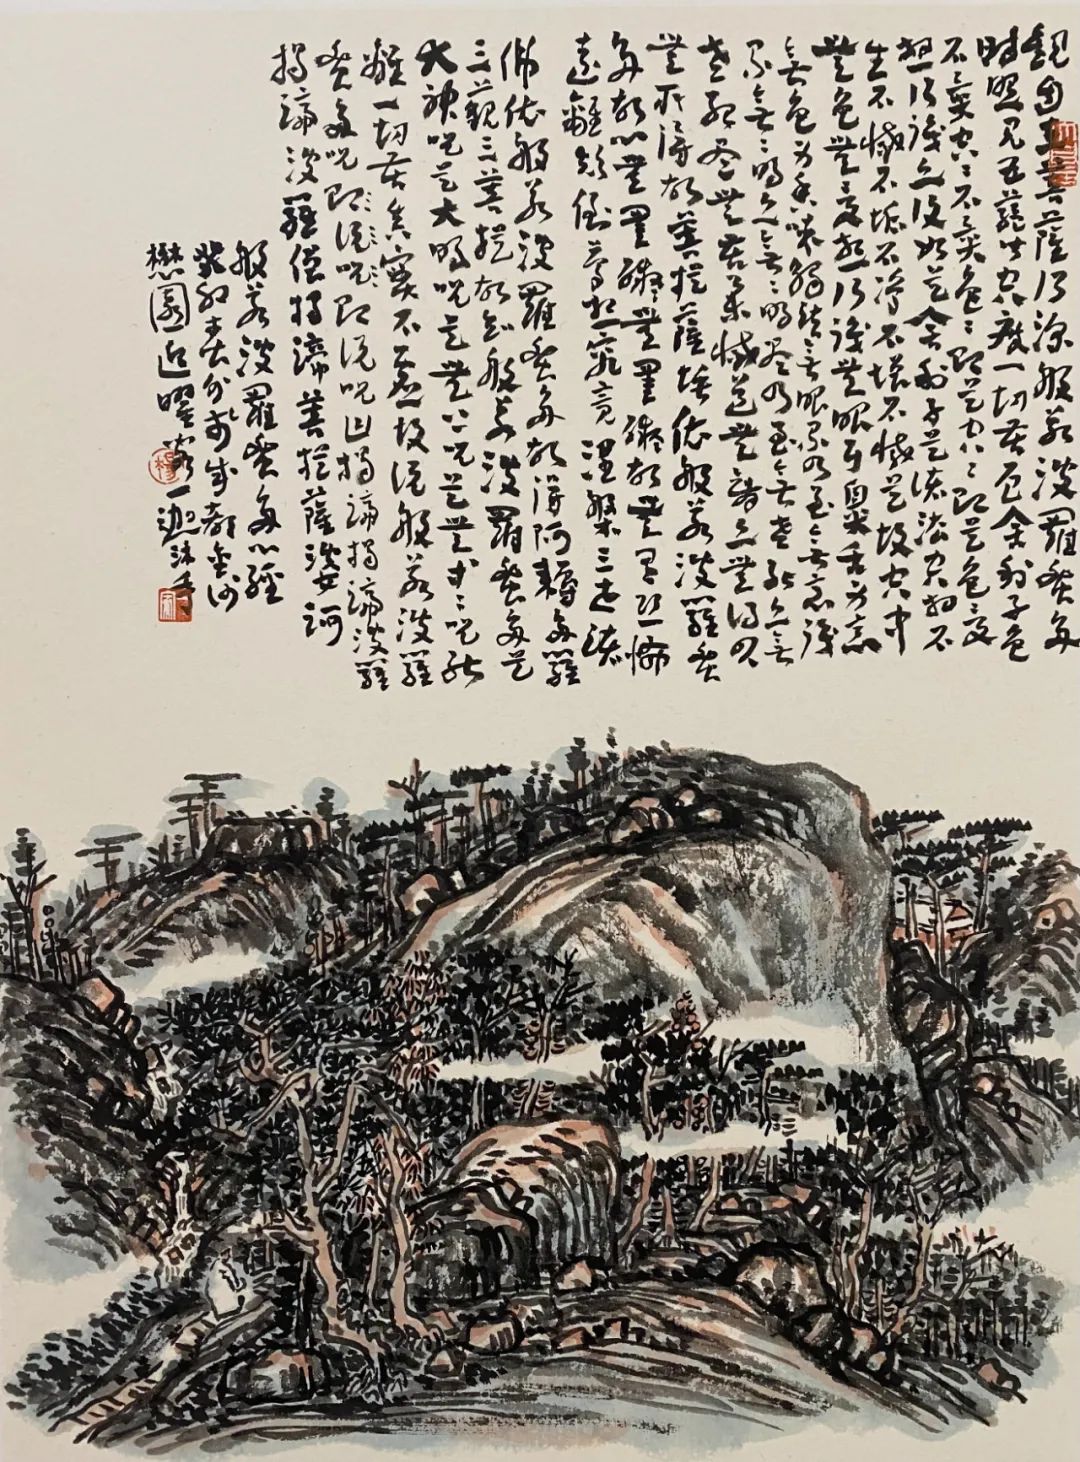 觀自在菩薩行深般若波羅蜜多
時照見五蘊皆空度一切苦厄舍利子色
不異空〻不異色〻即是空〻即是色受
想行識亦復如是舍利子是諸法空相不
生不滅不垢不淨不增不減是故空中
無色無受想行識無眼耳鼻舌身意
無色香味觸法無眼界乃至無意識
界無〻明亦無〻明盡乃至無老死亦無
老死盡無苦集滅道無智亦無得以
無所得故菩提薩埵依般若波羅蜜
多故心無罣礙無罣礙故無有恐怖
遠離顛倒夢想究竟涅槃三世諸
佛依般若波羅蜜多故得阿耨多羅
三藐三菩提故知般若波羅蜜多是
大神咒是大明咒是無上咒是無等〻咒能
除一切苦真實不虛故說般若波羅
蜜多咒即說咒即說咒曰揭諦揭諦波羅
揭諦波羅僧揭諦菩提薩婆訶
般若波羅蜜多心經
成都金沙
懋園近曜一迦沐手